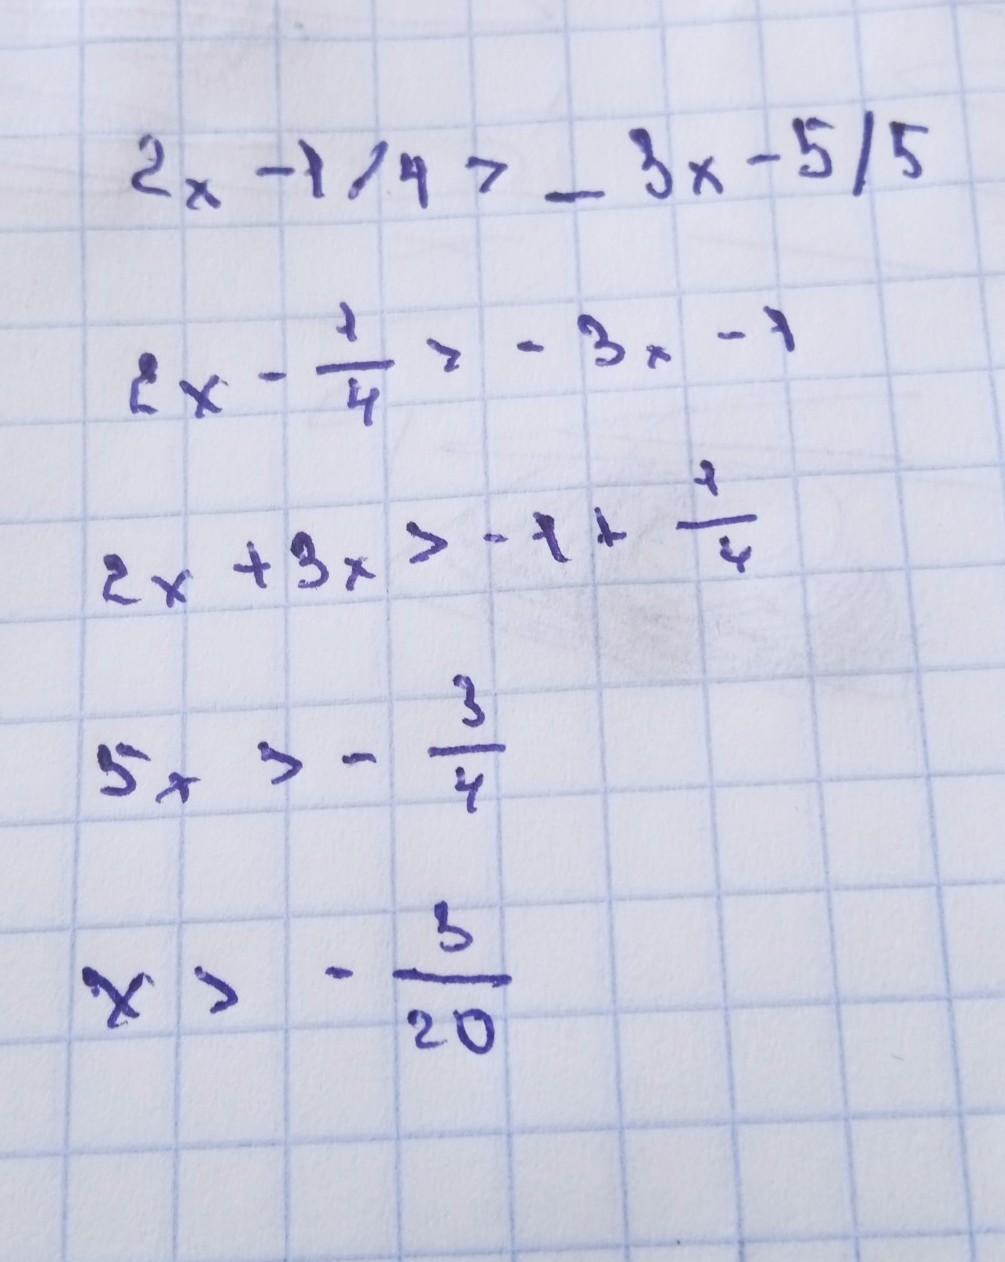 2x - 1/4 > - 3x - 5/5
2x - 1/4 > - 3x - 1
2x + 3x > - 1 + 1/4
5x > - 3/4
x > - 3/20